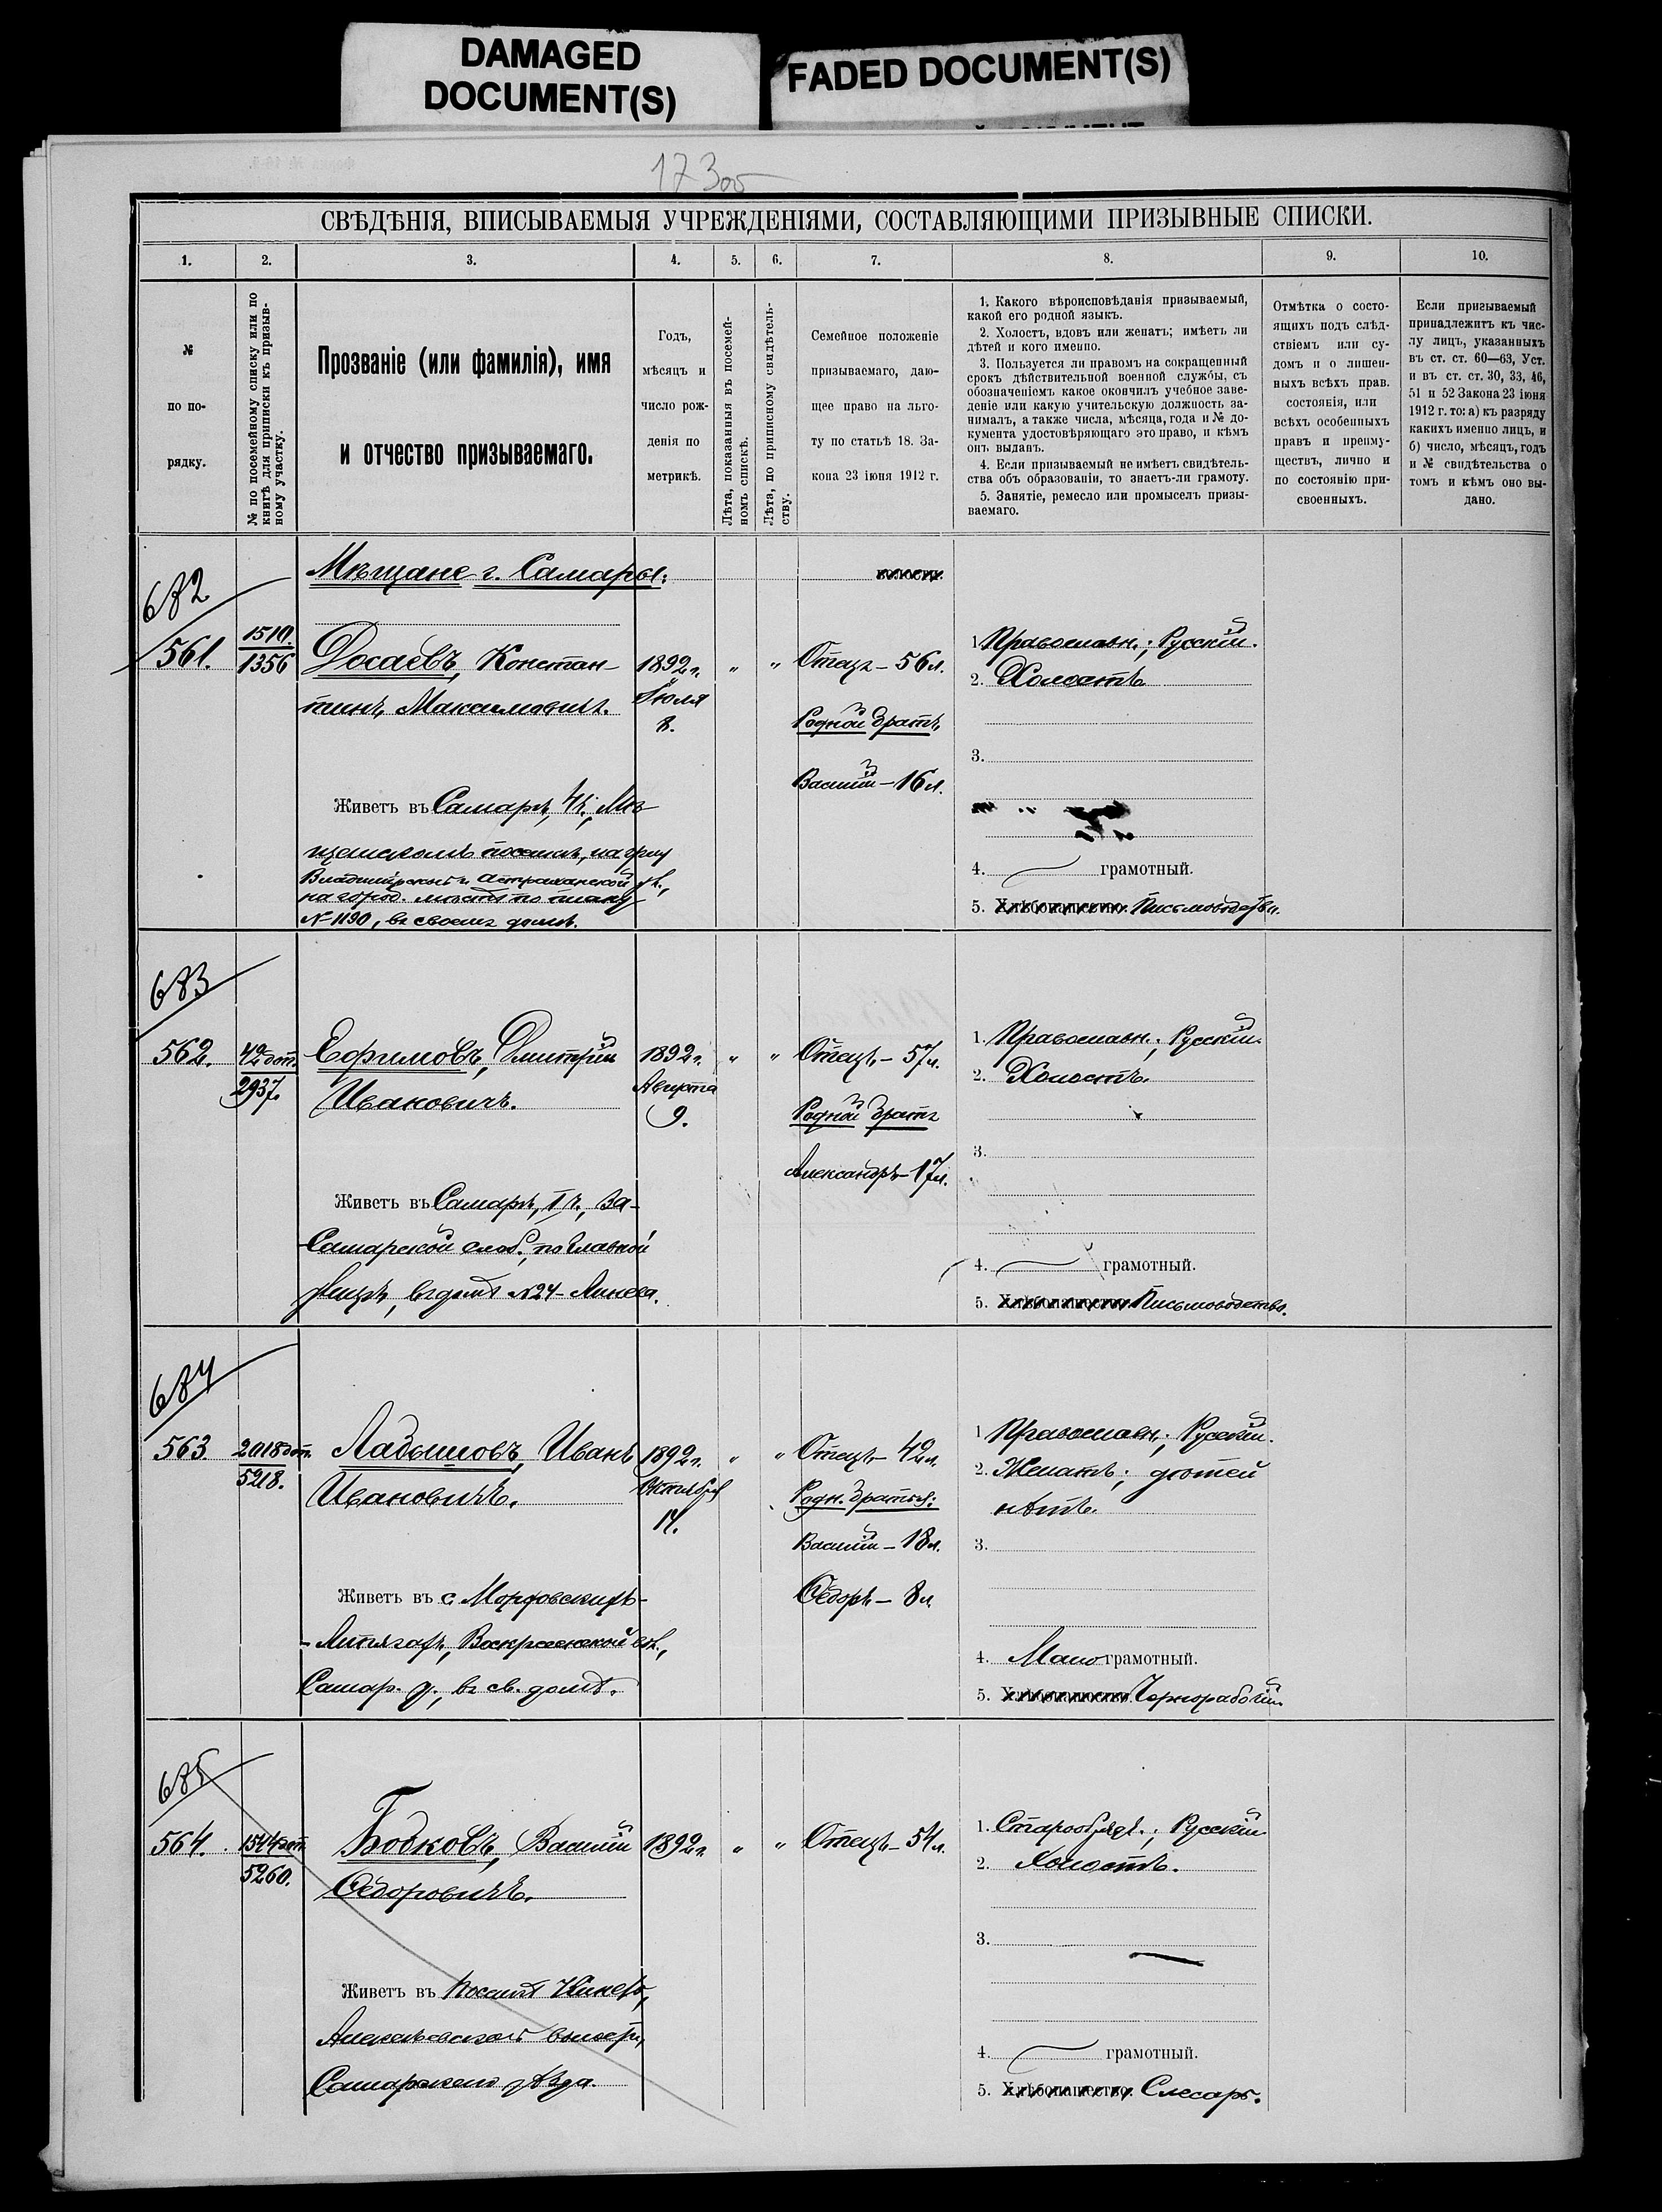 DAMAGED
DOCUMENT(S)
FADED DOCUMENT(S)
173 об
СВѢДѢНІЯ, ВПИСЫВАЕМЫЯ УЧРЕЖДЕНІЯМИ, СОСТАВЛЯЮЩИМИ ПРИЗЫВНЫЕ СПИСКИ.
1.
2.
3.
4.
5.
6.
7.
8.
9.
10.
№
по по-
рядку.
№ по посемейному списку или по
книгѣ для приписки къ призыв-
ному участку.
Прозваніе (или фамилія), имя
и отчество призываемаго.
Годъ,
мѣсяцъ и
число рож-
денія по
метрикѣ.
Лѣта, показанныя въ посемей-
номъ спискѣ.
Лѣта, по приписному свидѣтель-
ству.
Семейное положеніе
призываемаго, даю-
щее право на льго-
ту по статьѣ 18. За-
кона 23 іюня 1912 г.
1. Какого вѣроисповѣданія призываемый,
какой его родной языкъ.
2. Холостъ, вдовъ или женатъ; имѣетъ ли
дѣтей и кого именно.
3. Пользуется ли правомъ на сокращенный
срокъ дѣйствительной военной службы, съ
обозначеніемъ какое окончилъ учебное заве-
деніе или какую учительскую должность за-
нималъ, а также числа, мѣсяца, года и № до-
кумента удостовѣряющаго это право, и кѣмъ
онъ выданъ.
4. Если призываемый не имѣетъ свидѣтель-
ства объ образованіи, то знаетъ-ли грамоту.
5. Занятіе, ремесло или промыселъ призы-
ваемаго.
Отмѣтка о состо-
ящихъ подъ слѣд-
ствіемъ или су-
домъ и о лишен-
ныхъ всѣхъ прав.
состоянія, или
всѣхъ особенныхъ
правъ и преиму-
ществъ, лично и
по состоянію при-
своенныхъ.
Если призываемый
принадлежитъ къ чис-
лу лицъ, указанныхъ
въ ст. ст. 60—63, Уст.
и въ ст. ст. 30, 33, 46,
51 и 52 Закона 23 іюня
1912 г. то: а) къ разряду
какихъ именно лицъ, и
б) число, мѣсяцъ, годъ
и № свидѣтельства о
томъ и кѣмъ оно вы-
дано.
Мѣщане г. Самары:
682
561.
1510.
1356
Досаевъ, Констан-
тинъ Максимовичъ.
1892 г.
Іюля
8.
"
"
Отецъ – 56 л.
Родной братъ
Василій – 16 л.
1. Православн.; Русскій.
2. Холостъ
3.
4. грамотный.
5. Хлѣбопашество. Письмоводств.
Живетъ въ Самарѣ, 4 ч., Мѣ-
щанскомъ поселкѣ, на углу
Владимірской и Астраханской ул.,
на город. мѣстѣ по плану
№ 1190, въ своемъ домѣ.
683
562.
42 дот.
2937.
Ефимовъ, Дмитрій
Ивановичъ.
1892 г.
Августа
9.
"
"
Отецъ – 57 л.
Родной братъ
Александръ – 17 л.
1. Православн.; Русскій.
2. Холостъ.
3.
4. грамотный.
5. Хлѣбопашество Письмоводство.
Живетъ въ Самарѣ, 1 ч., За-
Самарской слоб., по Главной
улицѣ, въ домѣ № 24 –
684
563.
2018 дот.
5218.
Ладошовъ, Иванъ
Ивановичъ.
1892 г.
Октября
17.
"
"
Отецъ – 42 л.
Родн. братья:
Василій – 18 л.
Ѳедоръ – 8 л.
1. Православн.; Русскій.
2. Женатъ; дѣтей
нѣтъ.
3.
4. Мало грамотный.
5. Хлѣбопашество Чернорабочій.
Живетъ въ с. Мордовскихъ-
-Липягахъ, Воскресенской вол.,
Самар. у., въ св. домѣ.
685
564.
1544 дот.
5260.
Бобковъ, Василій
Ѳедоровичъ.
1892 г.
"
"
Отецъ – 54 л.
1. Старообряд.; Русскій
2. Холостъ.
3.
4. грамотный.
5. Хлѣбопашество. Слесарь.
Живетъ въ Поселкѣ Кинель,
Алексѣевской волости,
Самарскаго уѣзда.